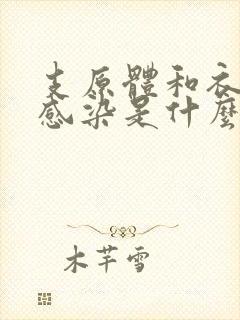 支原體和衣
感染是什麼
木芊雪